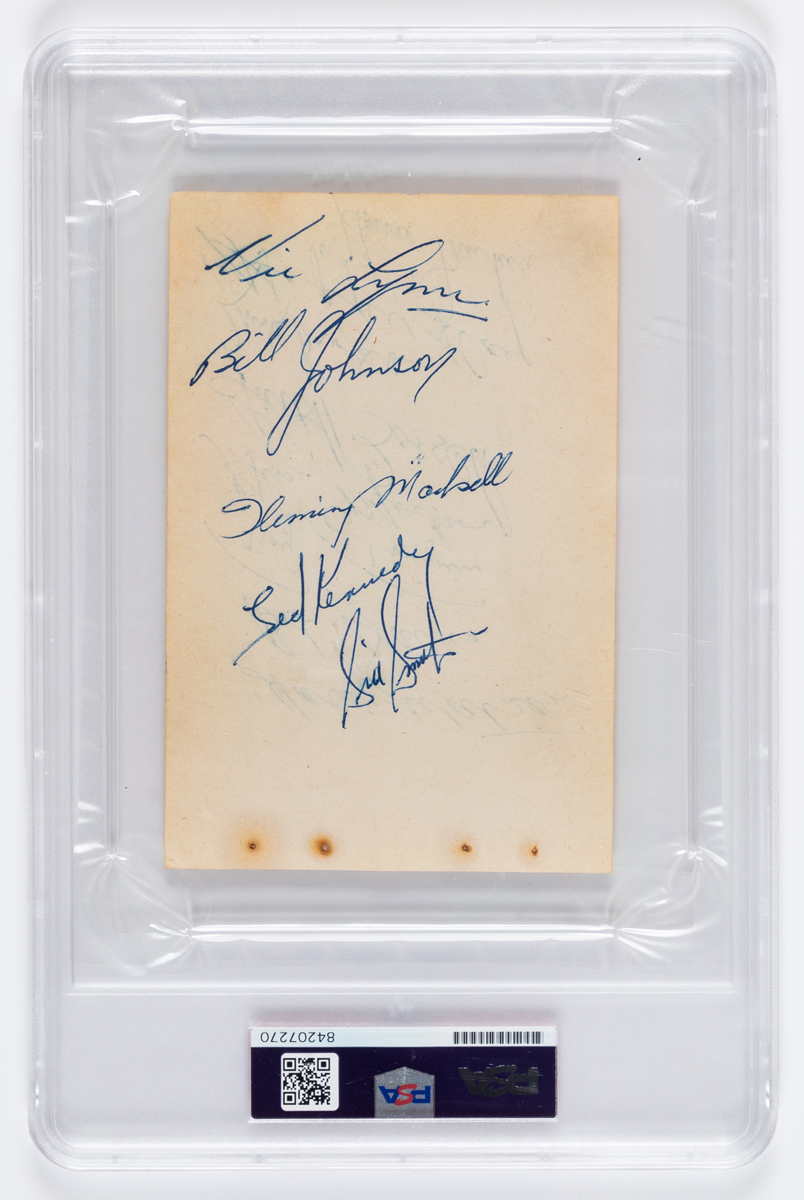 Vic Lynn
Bill Johnson
Fleming Mackell
Ted Kennedy
Sid Smith
84207270
PSA
PSA